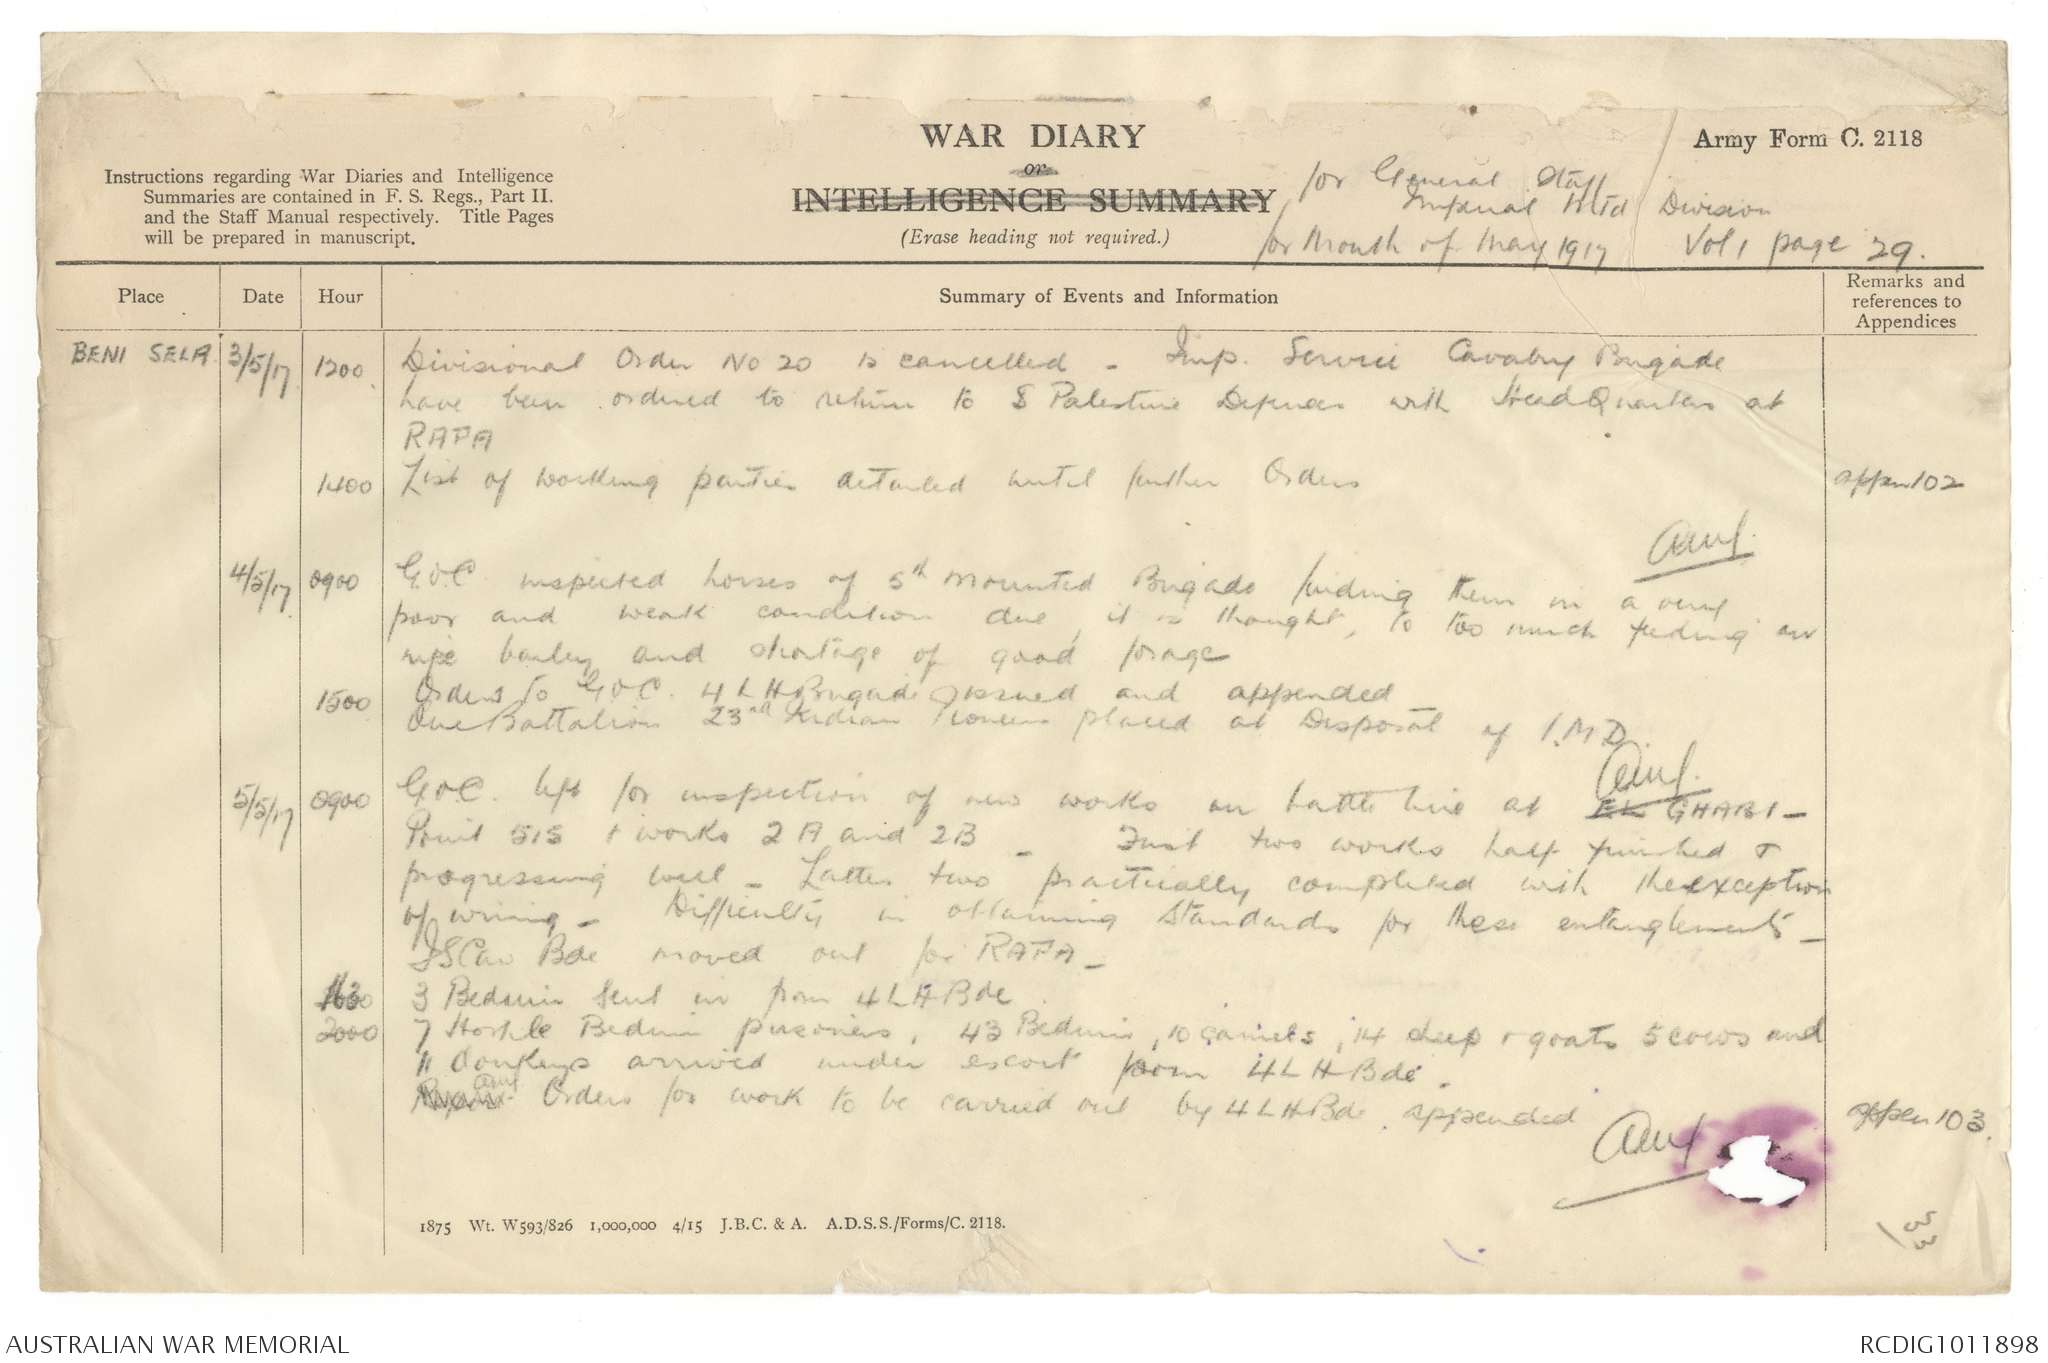 WAR DIARY
or
INTELLIGENCE SUMMARY
(Erase heading not required.)
Army Form C. 2118
Instructions regarding War Diaries and Intelligence
Summaries are contained in F. S. Regs., Part II.
and the Staff Manual respectively. Title Pages
will be prepared in manuscript.
for General Staff
Imperial Mtd Division
for Month of May 1917 Vol 1 page 29.
Place Date Hour Summary of Events and Information Remarks and
references to
Appendices
BENI SELA 3/5/17 1200 Divisional Order No 20 is cancelled - Imp. Service Cavalry Brigade
have been ordered to return to S Palestine Defences with HeadQuarters at
RAFA
1400 List of working parties detailed until further Orders appen 102
4/5/17 0900 G.O.C. inspected horses of 5th Mounted Brigade finding them in a very
poor and weak condition due, it is thought, to too much feeding on
ripe barley and shortage of good forage
1500 Orders to G.O.C. 4 L H Brigade issued and appended
One Battalion 23rd Indian Pioneers placed at Disposal of I.M.D.
5/5/17 0900 G.O.C. left for inspection of new works on battle line at EL GHABI -
Point 515 & works 2A and 2B - First two works half finished &
progressing well - Latter two practically completed with the exception
of wiring - Difficulty in obtaining Standards for these entanglements -
ISCav Bde moved out for RAFA -
3 Beduin sent in from 4 L H Bde.
2000 7 Hostile Beduin prisoners, 43 Beduin, 10 camels, 14 sheep & goats 5 cows and
11 donkeys arrived under escort from 4 L H Bde.
Orders for work to be carried out by 4 L H Bde. appended appen 103.
1875 Wt. W593/826 1,000,000 4/15 J.B.C. & A. A.D.S.S./Forms/C. 2118.
33
AUSTRALIAN WAR MEMORIAL
RCDIG1011898